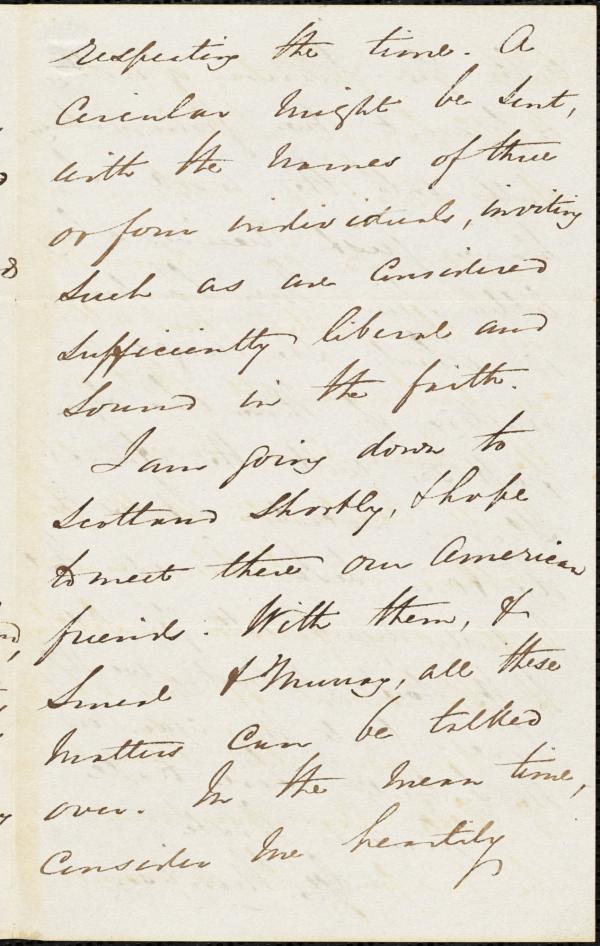 respecting the time. A
Circular might be sent,
with the names of three
or four individuals, inviting
such as are considered
sufficiently liberal and
sound in the faith.
I am going down to
Scotland shortly, & hope
to meet there our American
friends. With them, &
Smeal & Murray, all these
matters can be talked
over. In the mean time,
consider me heartily